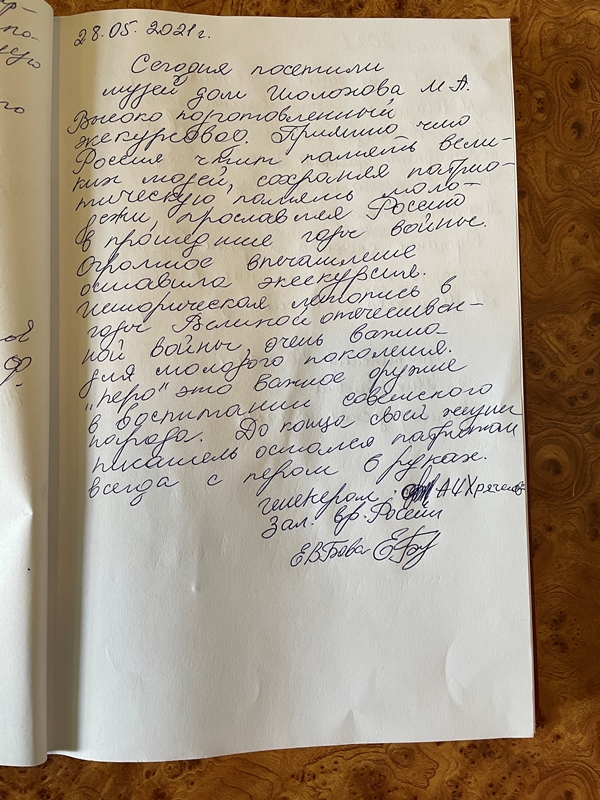 28.05.2021 г.
Сегодня посетили
музей дом Шолохова М.А.
Высоко подготовленный
экскурсовод. Приятно что
Россия чтит память вели-
ких людей, сохраняя патрио-
тическую память моло-
дежи, прославляя Россию
в прошедшие годы войны.
Огромное впечатление
оставила экскурсия.
Историческая летопись в
годы Великой отечествен-
ной войны, очень важна
для молодого поколения.
"перо" это важное оружие
в воспитании советского
народа. До конца своей жизни
писатель остался патриотом
всегда с пером в руках.
А Ч
Зал. вр. России
Е В Бова